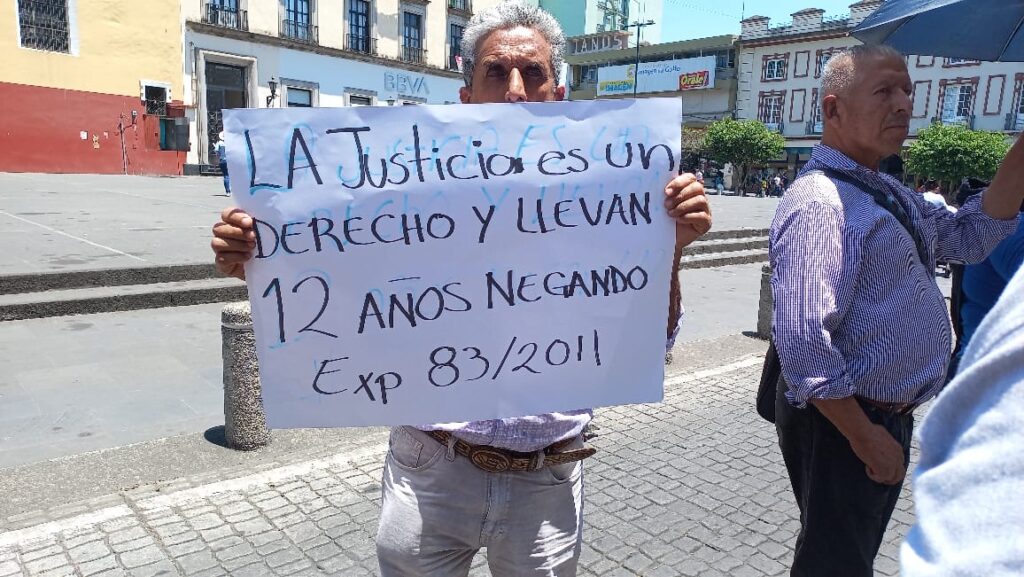 BBVA
LA Justicia es un
DERECHO Y LLEVAN
12 AÑOS NEGANDO
Exp 83/2011